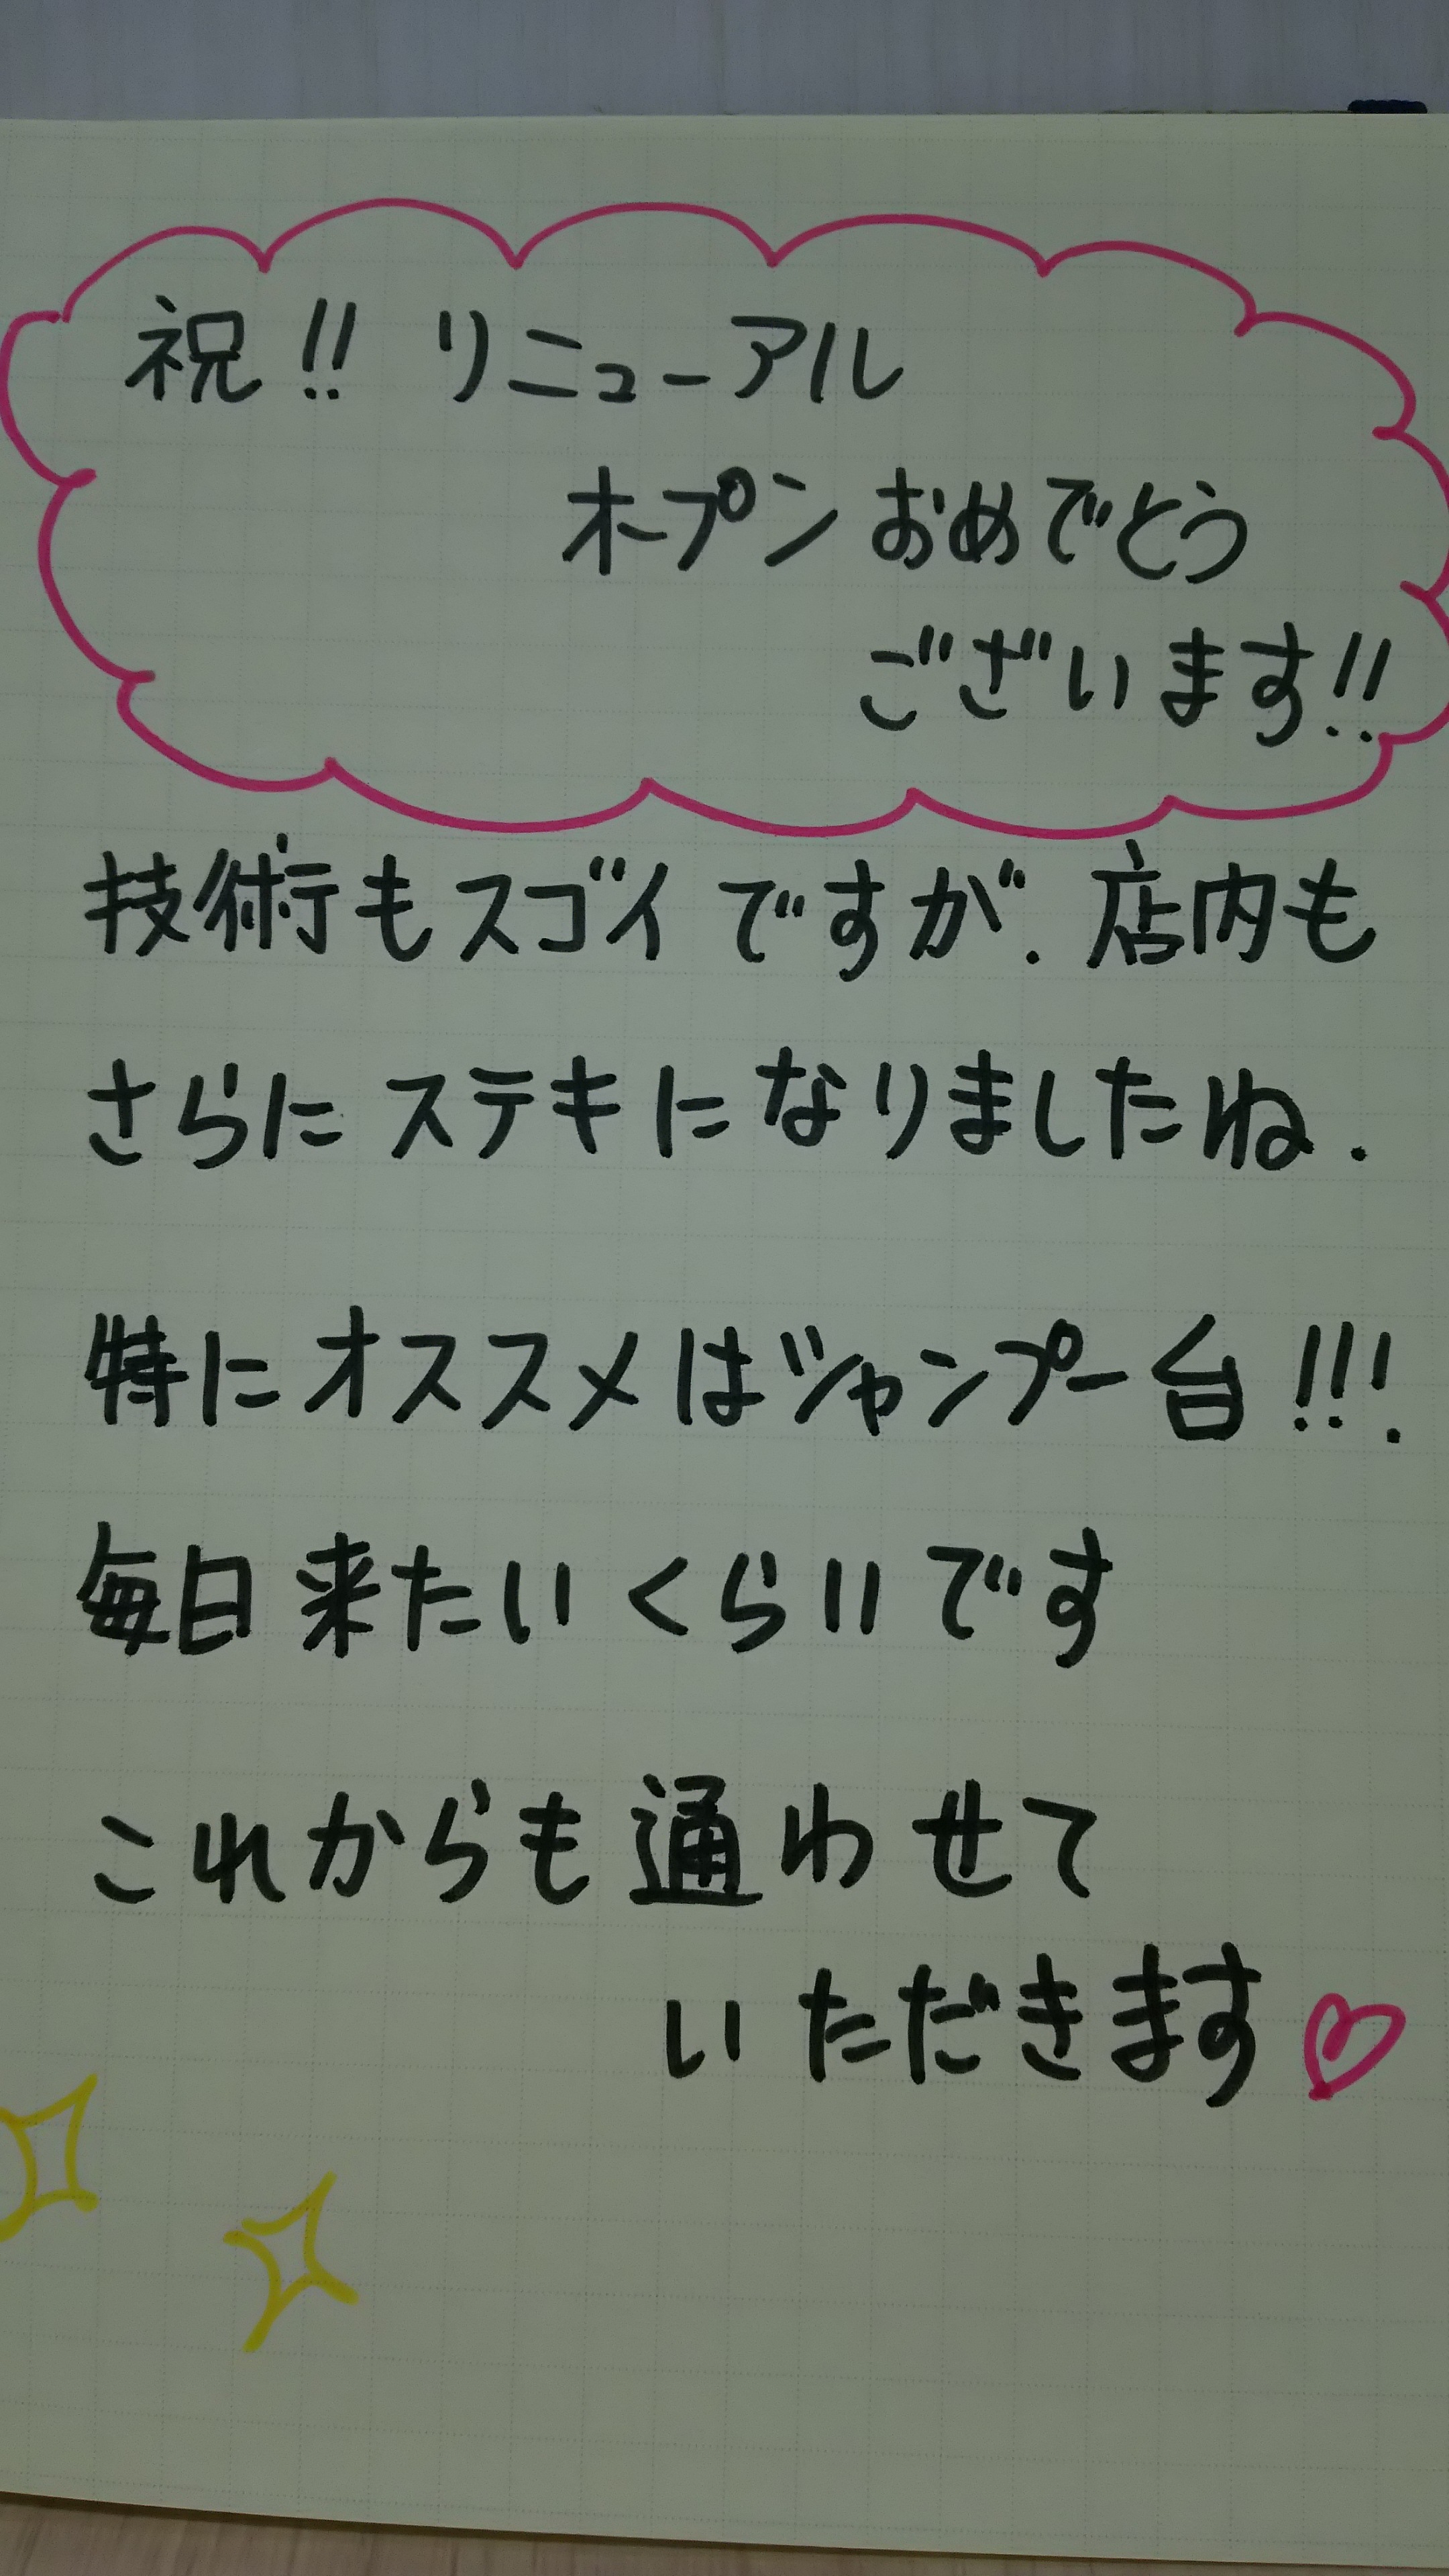 祝!! リニューアル
オープンおめでとう
ございます!!
技術もスゴイですが.店内も
さらにステキになりましたね.
特にオススメはシャンプー台!!!
毎日来たいくらいです
これからも通わせて
いただきます♡